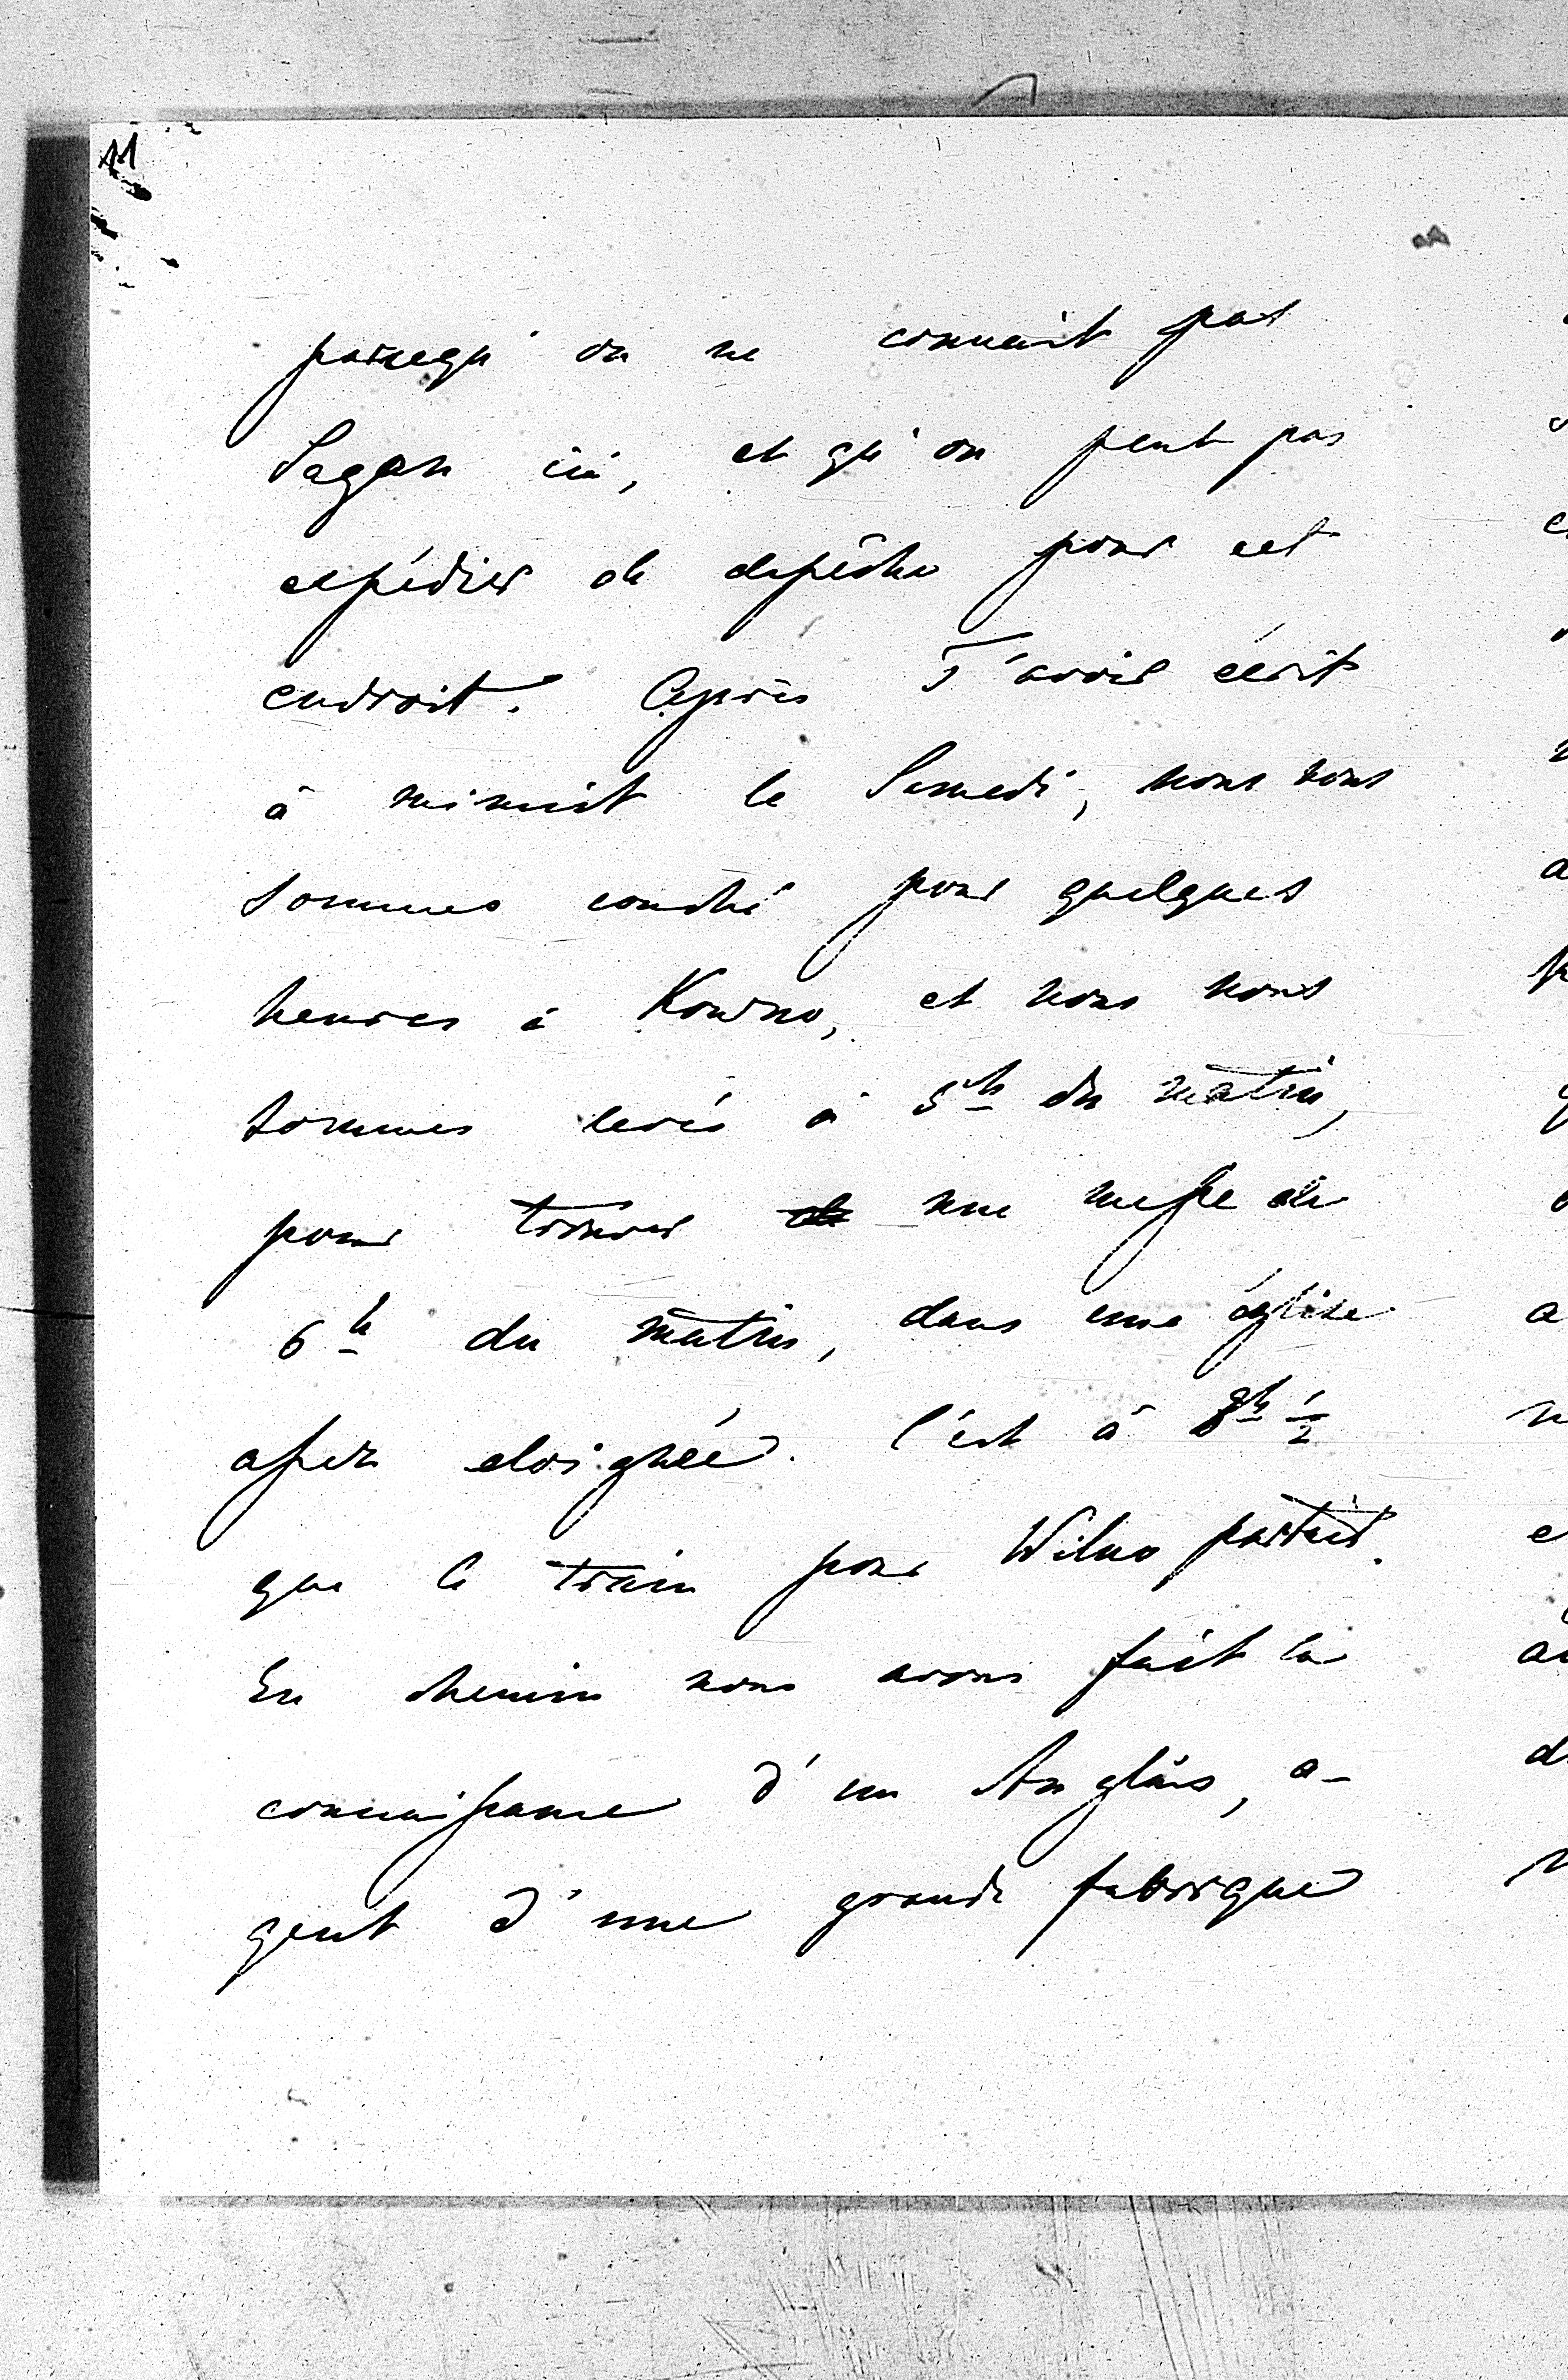 11
parcequ'on ne connait pas
Sagan ici, et qu'on peut pas
expédier de depêche pour cet
endroit. Après T'avoir écrit
à minuit le Samedi, nous nous
sommes couché pour quelques
heures à Kowno, et nous nous
sommes levés à 5h du matin,
pour trouver de une messe de
6h du matin, dans une église
assez eloignée. C'est à 8h 1/2
que le train pour Wilno partait.
En chemin nous avons fait la
connaissance d'un Anglais, a-
gent d'une grande fabrique